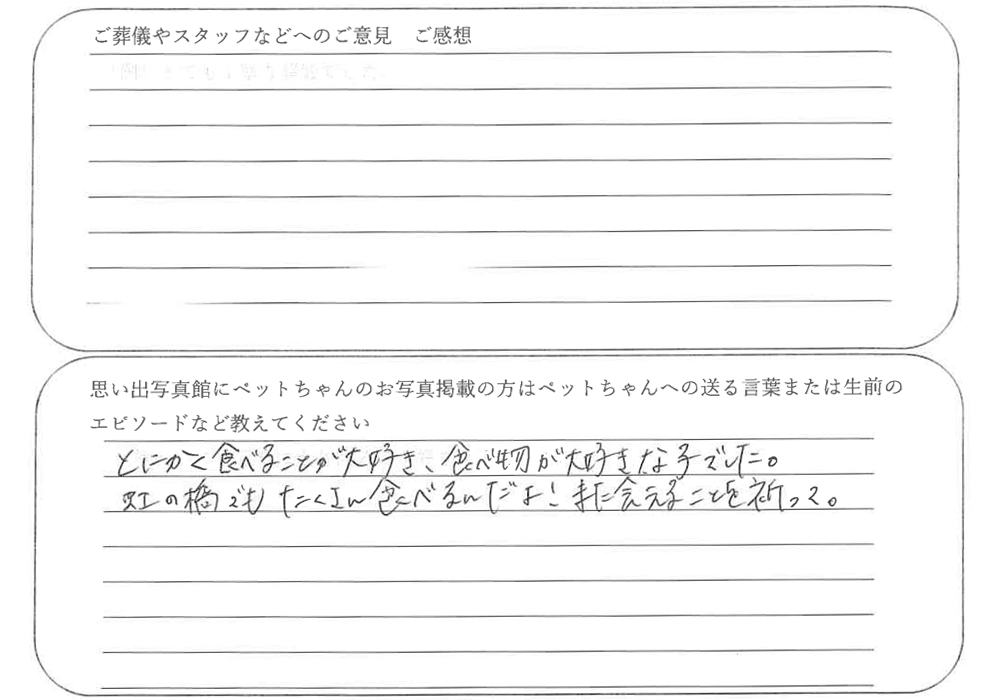 ご葬儀やスタッフなどへのご意見　ご感想
思い出写真館にペットちゃんのお写真掲載の方はペットちゃんへの送る言葉または生前の
エピソードなど教えてください
とにかく食べることが大好き、食べ物が大好きな子でした。
虹の橋でもたくさん食べるんだよ！また会えることを祈って。